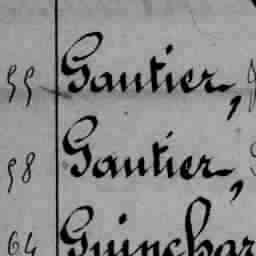 55 Gautier,
58 Gautier,
64 Guinchar